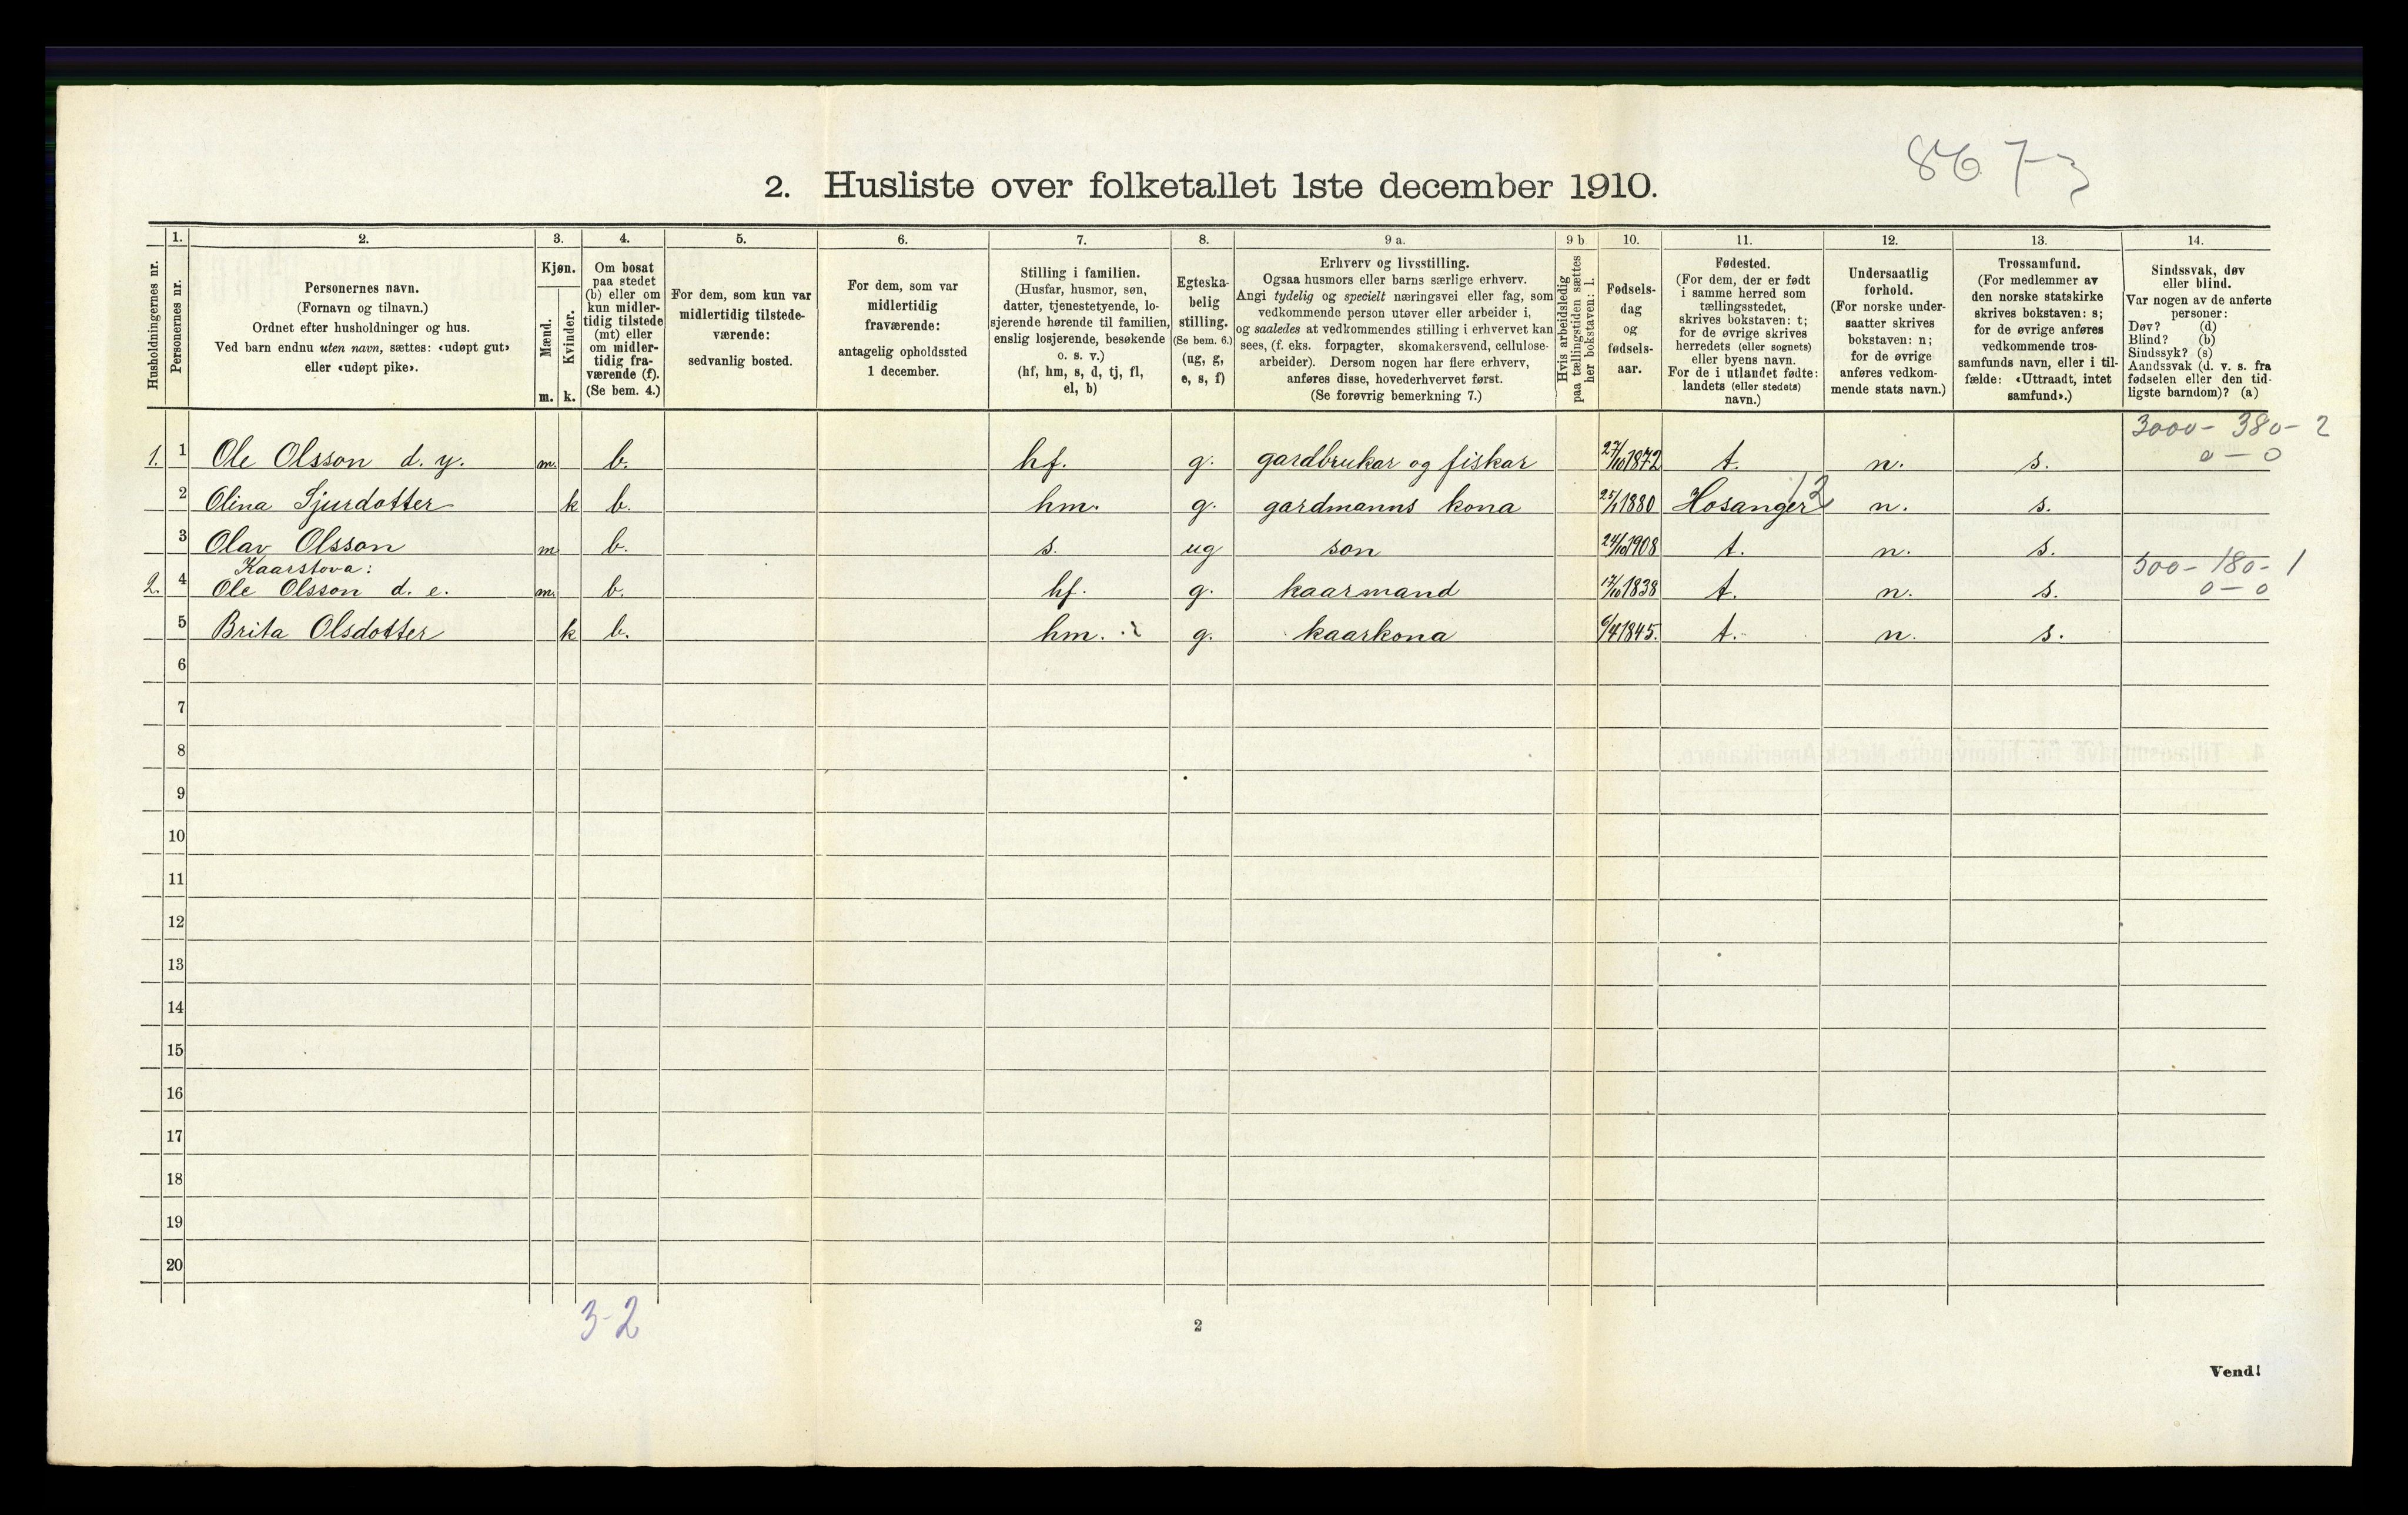 867-3
2. Husliste over folketallet 1ste december 1910.
Husholdningernes nr.
1.
Personernes nr.
2.
Personernes navn.
(Fornavn og tilnavn.)
Ordnet efter husholdninger og hus.
Ved barn endnu uten navn, sættes: «udøpt gut»
eller «udøpt pike».
3.
Kjøn.
Mænd.
Kvinder.
m. k.
4.
Om bosat
paa stedet
(b) eller om
kun midler-
tidig tilstede
(mt) eller
om midler-
tidig fra-
værende (f).
(Se bem. 4.)
5.
For dem, som kun var
midlertidig tilstede-
værende:
sedvanlig bosted.
6.
For dem, som var
midlertidig
fraværende:
antagelig opholdssted
1 december.
7.
Stilling i familien.
(Husfar, husmor, søn,
datter, tjenestetyende, lo-
sjerende hørende til familien,
enslig losjerende, besøkende
o. s. v.)
(hf, hm, s, d, tj, fl,
el, b)
8.
Egteska-
belig
stilling.
(Se bem. 6.)
(ug, g,
e, s, f)
9 a.
Erhverv og livsstilling.
Ogsaa husmors eller barns særlige erhverv.
Angi tydelig og specielt næringsvei eller fag, som
vedkommende person utøver eller arbeider i,
og saaledes at vedkommendes stilling i erhvervet kan
sees, (f. eks. forpagter, skomakersvend, cellulose-
arbeider). Dersom nogen har flere erhverv,
anføres disse, hovederhvervet først.
(Se forøvrig bemerkning 7.)
9 b
Hvis arbeidsledig
paa tællingstiden sættes
her bokstaven: l.
10.
Fødsels-
dag
og
fødsels-
aar.
11.
Fødested.
(For dem, der er født
i samme herred som
tællingsstedet,
skrives bokstaven: t;
for de øvrige skrives
herredets (eller sognets)
eller byens navn.
For de i utlandet fødte:
landets (eller stedets)
navn.)
12.
Undersaatlig
forhold.
(For norske under-
saatter skrives
bokstaven: n;
for de øvrige
anføres vedkom-
mende stats navn.)
13.
Trossamfund.
(For medlemmer av
den norske statskirke
skrives bokstaven: s;
for de øvrige anføres
vedkommende tros-
samfunds navn, eller i til-
fælde: «Uttraadt, intet
samfund».)
14.
Sindssvak, døv
eller blind.
Var nogen av de anførte
personer:
Døv? (d)
Blind? (b)
Sindssyk? (s)
Aandssvak (d. v. s. fra
fødselen eller den tid-
ligste barndom)? (a)
3000 - 380 - 2
1. 1 Ole Olsson d. y. m. b. hf. g. gardbrukar og fiskar 27/10 1872 t. n. s. 0 - 0
2 Olina Sjurdotter k b. hm. g. gardmanns kona 25/1 1880 Hosanger n. s.
3 Olav Olsson m b. s. ug son 24/10 1908 t. n. s.
Kaarstova: 500 - 180 - 1
2. 4 Ole Olsson d. e. m. b. hf. g. kaarmand 17/10 1838 t. n. s. 0 - 0
5 Brita Olsdotter k b. hm. g. kaarkona 6/4 1845. t. n. s.
6
7
8
9
10
11
12
13
14
15
16
17
18
19
20
3-2
2
Vend!